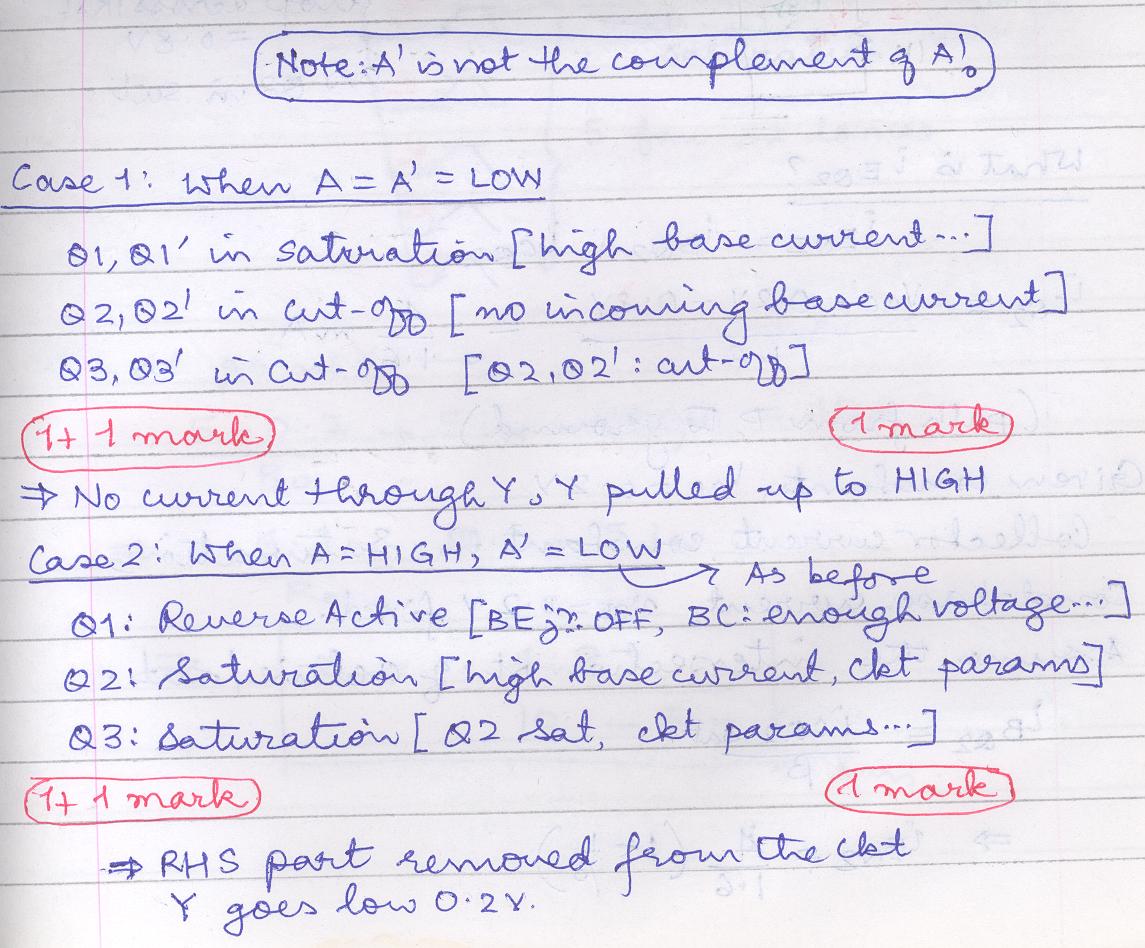 Note: A' is not the complement of A!
Case 1: When A = A' = LOW
Q1, Q1' in saturation [high base current...]
Q2, Q2' in cut-off [no incoming base current]
Q3, Q3' in cut-off [Q2, Q2': cut-off]
1+1 mark 1 mark
⇒ No current through Y, Y pulled up to HIGH
Case 2: When A = HIGH, A' = LOW
→ As before
Q1: Reverse Active [BE jn: OFF, BC: enough voltage...]
Q2: Saturation [high base current, ckt params]
Q3: Saturation [Q2 sat, ckt params...]
1+1 mark 1 mark
⇒ RHS part removed from the ckt
Y goes low 0.2V.